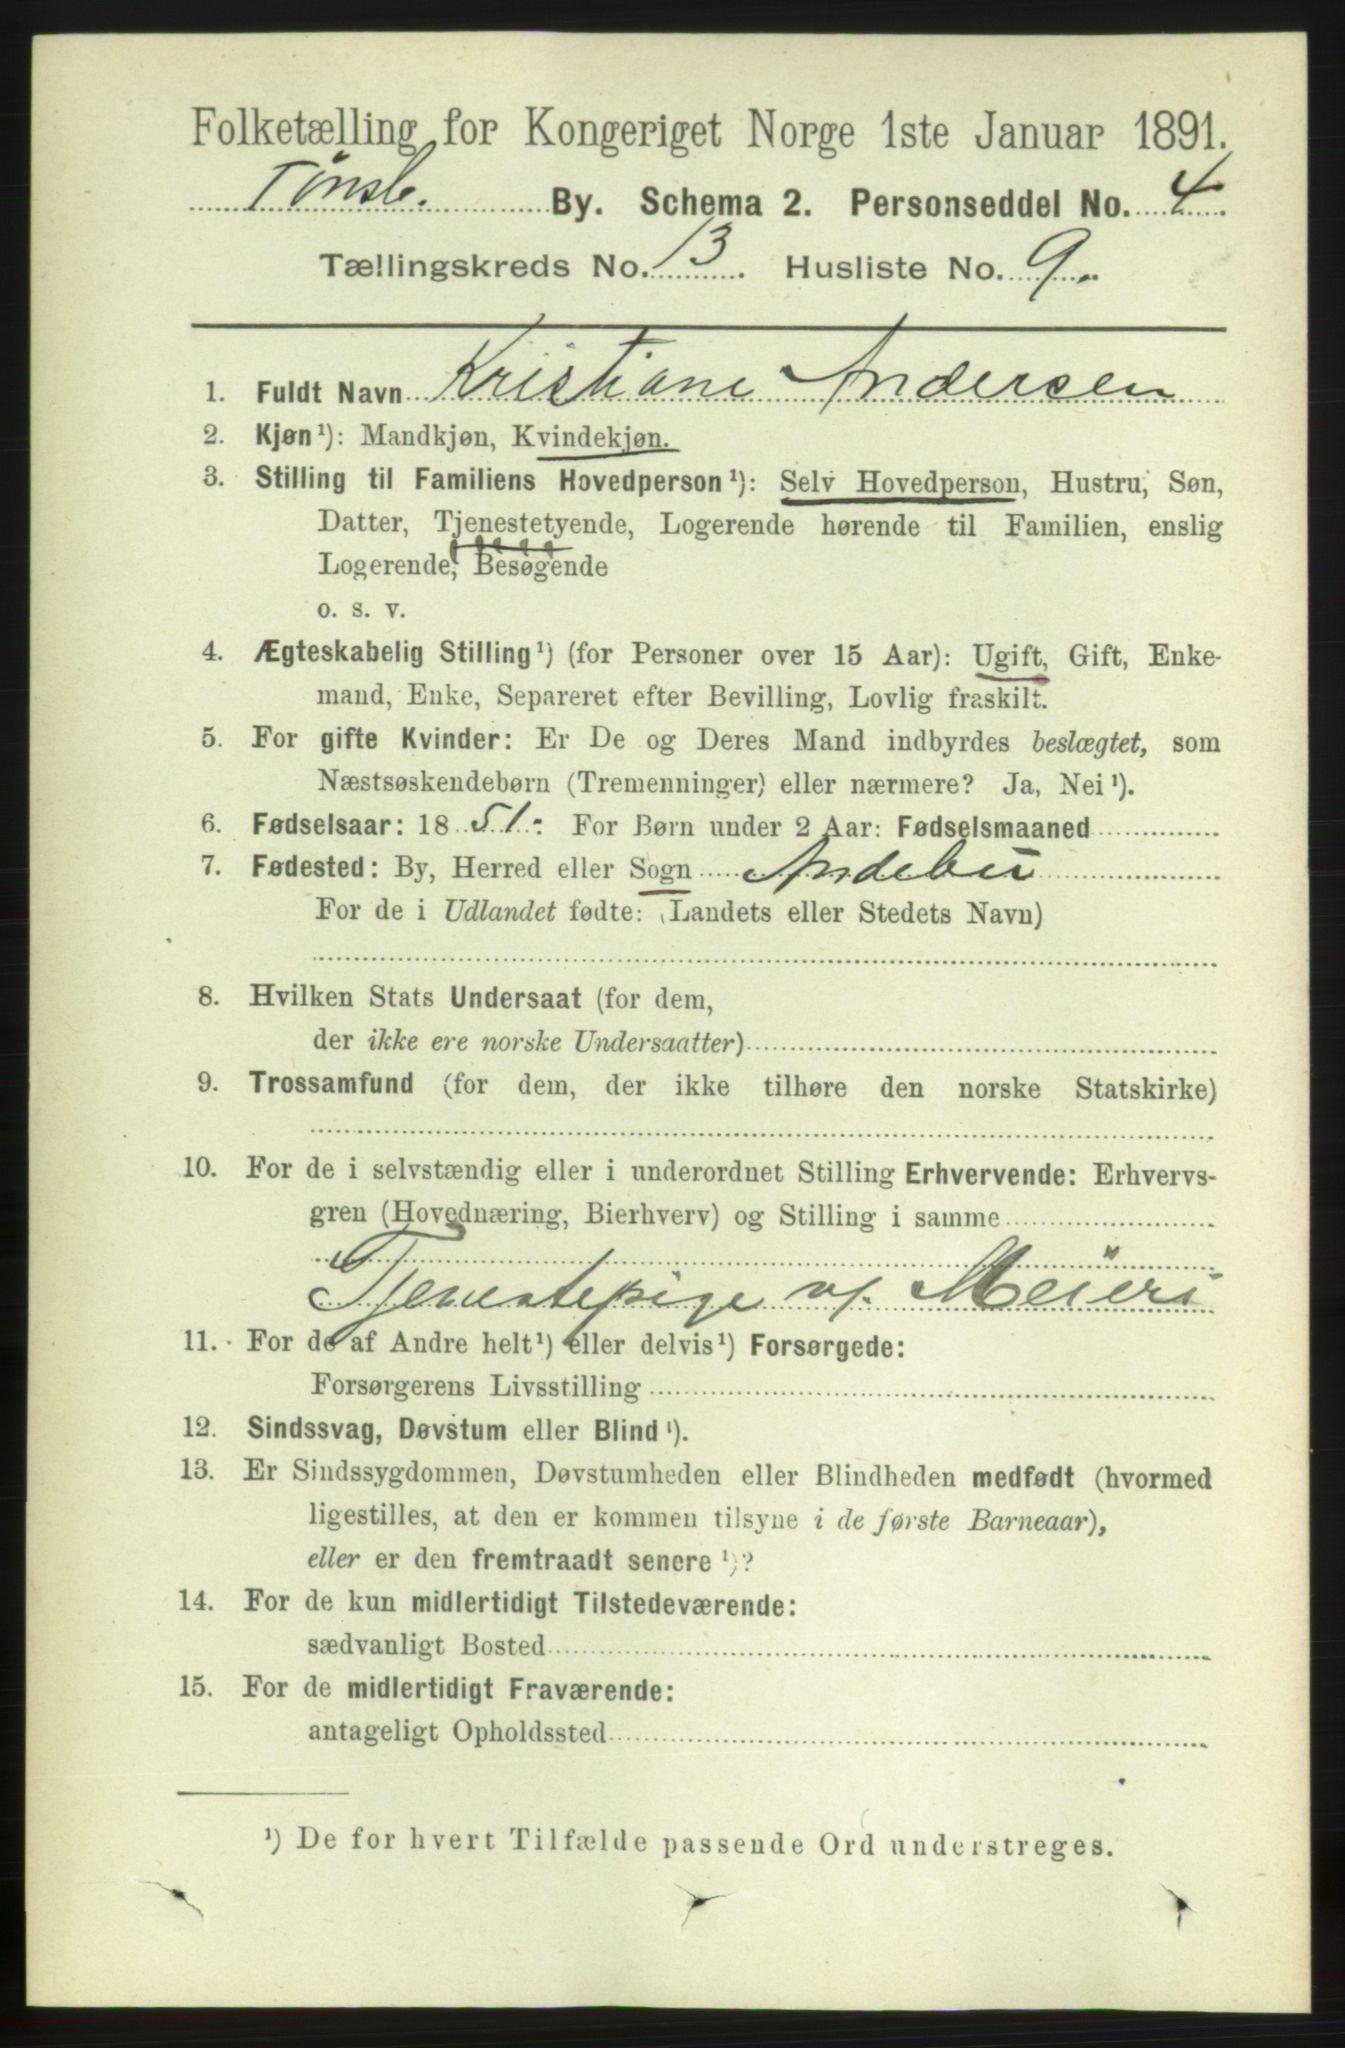 Folketælling for Kongeriget Norge 1ste Januar 1891.
Tønsb. By. Schema 2. Personseddel No. 4
Tællingskreds No. 13. Husliste No. 9.
1. Fuldt Navn Kristiane Andersen
2. Kjøn¹): Mandkjøn, Kvindekjøn.
3. Stilling til Familiens Hovedperson¹): Selv Hovedperson, Hustru, Søn,
Datter, Tjenestetyende, Logerende hørende til Familien, enslig
Logerende, Besøgende
o. s. v.
4. Ægteskabelig Stilling¹) (for Personer over 15 Aar): Ugift, Gift, Enke-
mand, Enke, Separeret efter Bevilling, Lovlig fraskilt.
5. For gifte Kvinder: Er De og Deres Mand indbyrdes beslægtet, som
Næstsøskendebørn (Tremenninger) eller nærmere? Ja, Nei¹).
6. Fødselsaar: 1851. For Børn under 2 Aar: Fødselsmaaned
7. Fødested: By, Herred eller Sogn Andebu
For de i Udlandet fødte: (Landets eller Stedets Navn)
8. Hvilken Stats Undersaat (for dem,
der ikke ere norske Undersaatter)
9. Trossamfund (for dem, der ikke tilhøre den norske Statskirke)
10. For de i selvstændig eller i underordnet Stilling Erhvervende: Erhvervs-
gren (Hovednæring, Bierhverv) og Stilling i samme
Tjenestepige v/. Meieri
11. For de af Andre helt¹) eller delvis¹) Forsørgede:
Forsørgerens Livsstilling
12. Sindssvag, Døvstum eller Blind¹).
13. Er Sindssygdommen, Døvstumheden eller Blindheden medfødt (hvormed
ligestilles, at den er kommen tilsyne i de første Barneaar),
eller er den fremtraadt senere¹)?
14. For de kun midlertidigt Tilstedeværende:
sædvanligt Bosted
15. For de midlertidigt Fraværende:
antageligt Opholdssted
¹) De for hvert Tilfælde passende Ord understreges.